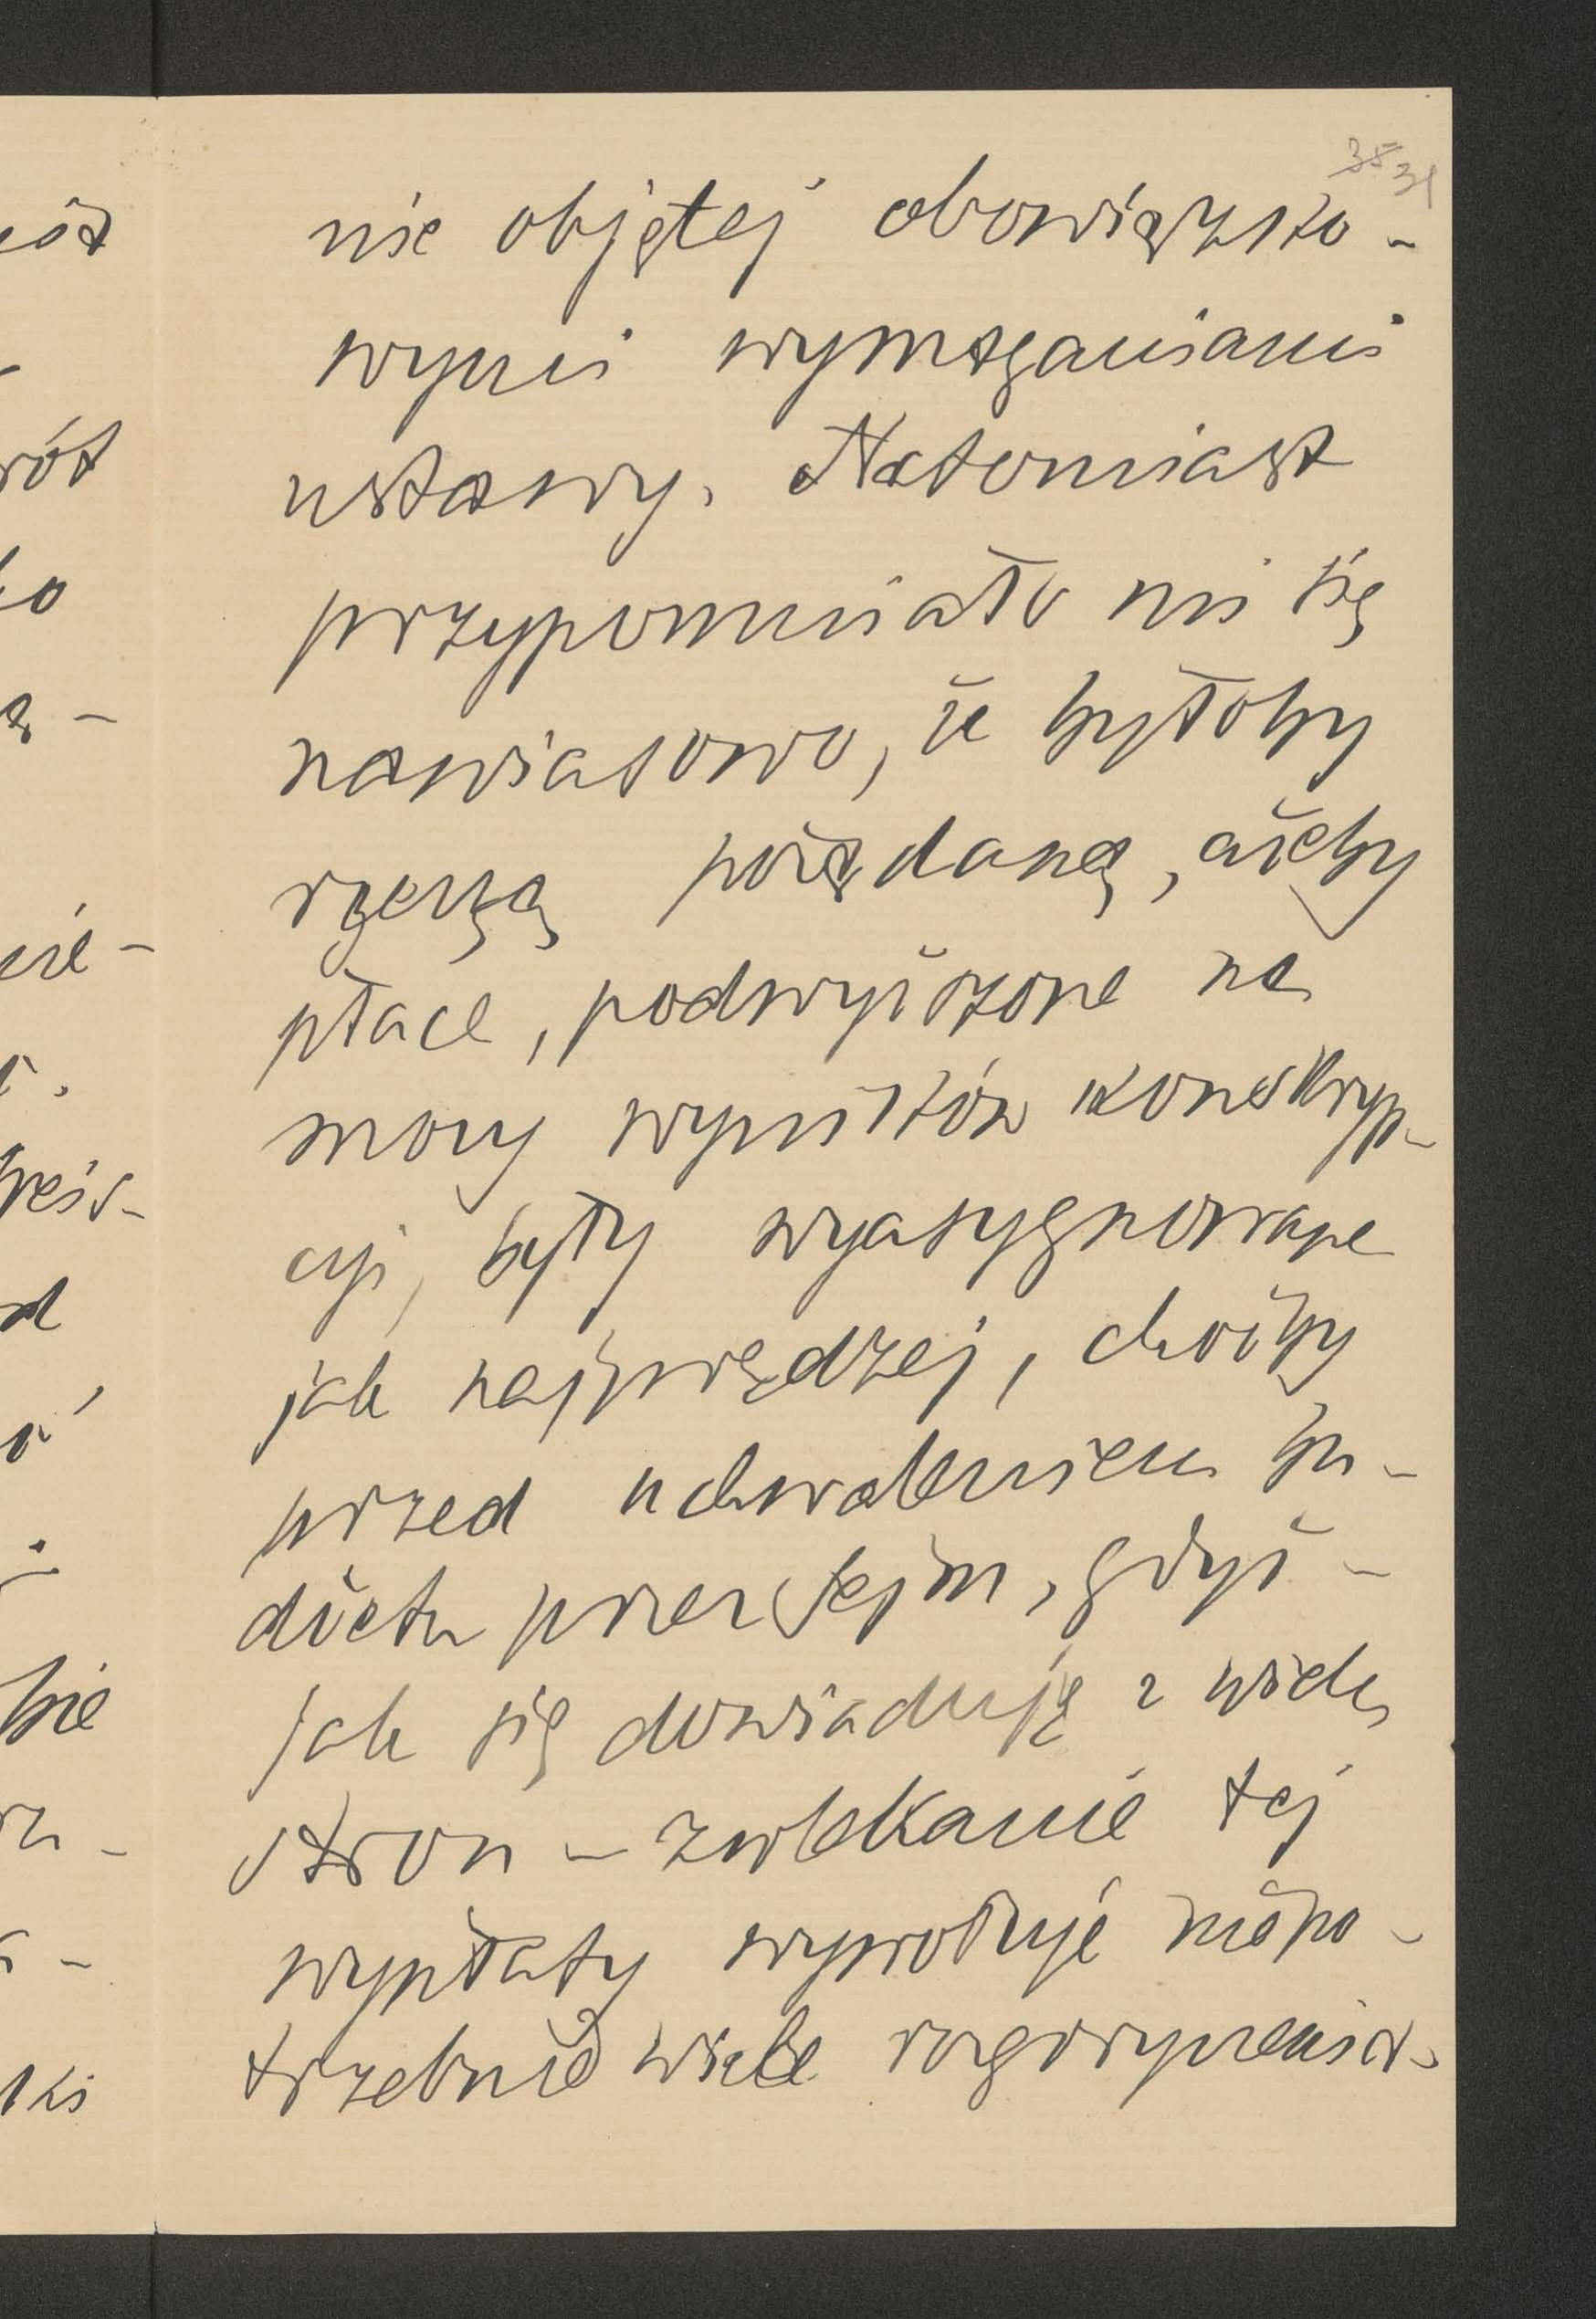 35 31
nie objętej obowiązko-
wymi wymaganiami
ustawy. Natomiast
przypomniało mi się
nawiasowo, że byłoby
rzeczą pożądaną, ażeby
płace, podwyższone na
mocy wyników konskryp-
cyi, były wyasygnowane
jak najprędzej, choćby
przed uchwaleniem bu-
dżetu przez Sejm, gdyż -
jak się dowiaduję z wielu
stron - zwlekanie tej
wypłaty wywołuje niepo-
trzebnie wiele rozgoryczenia.